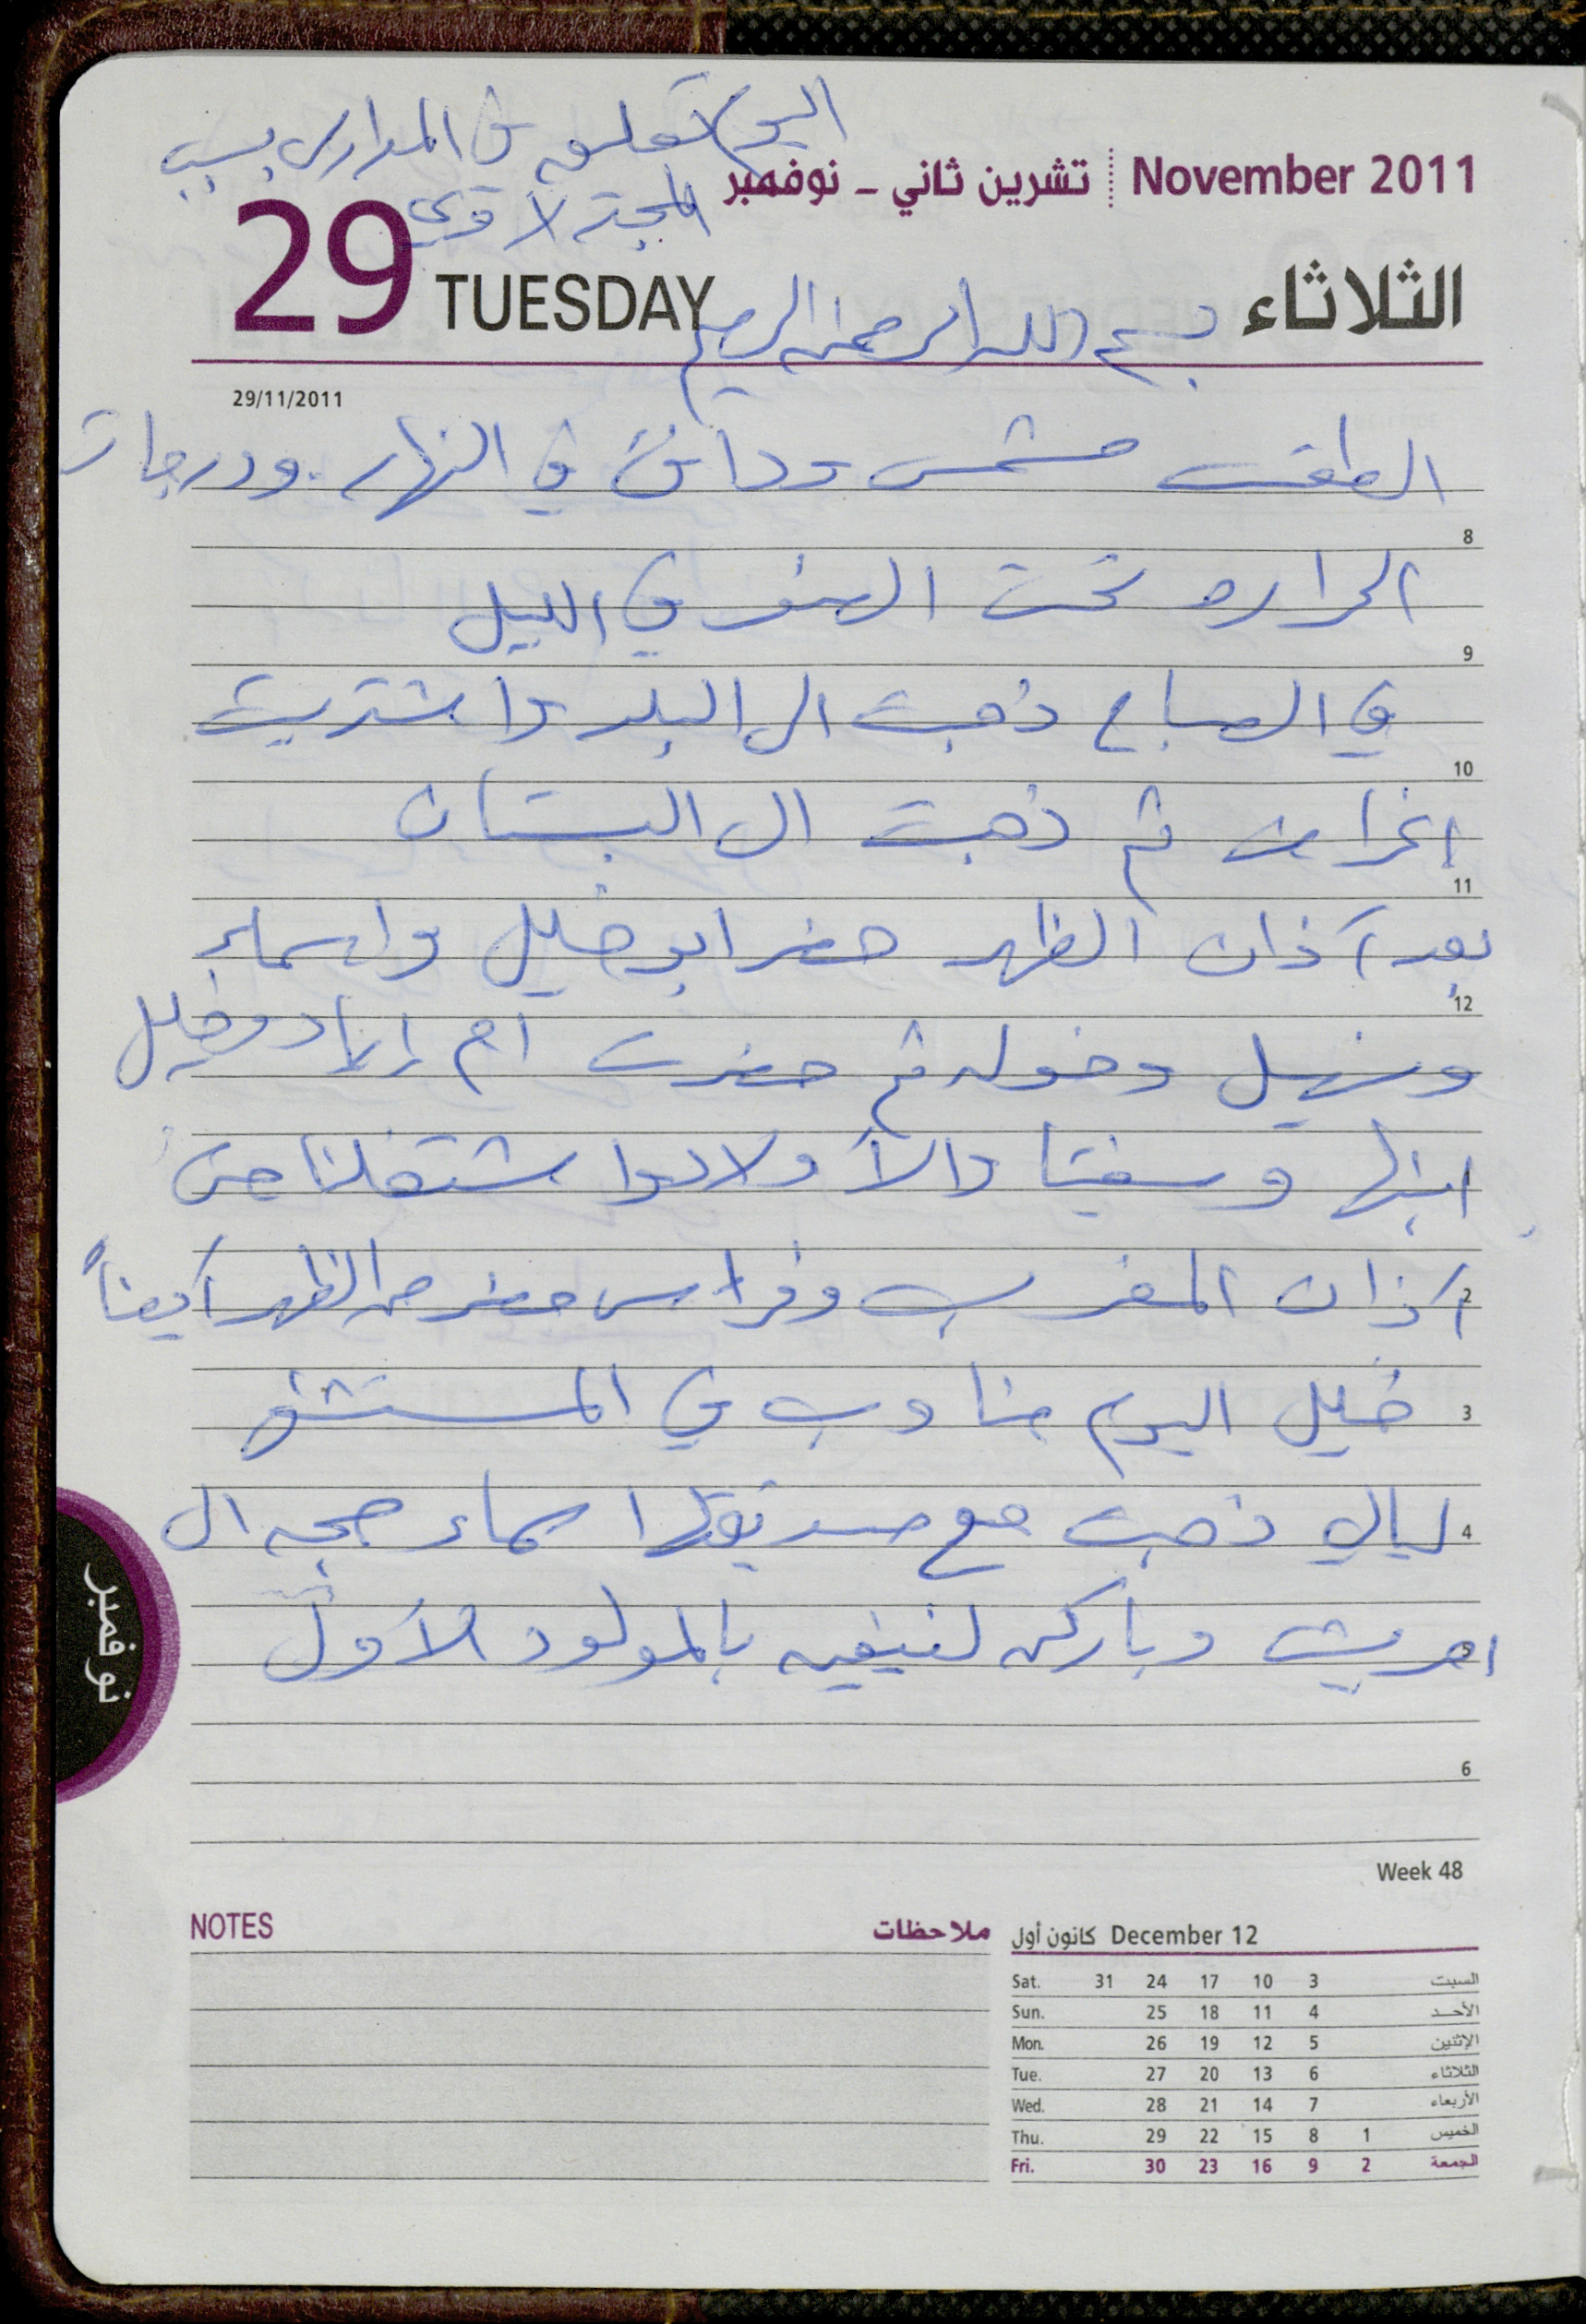 اليوم تعليق في المدارس بسبب
November 2011 تشرين ثاني - نوفمبر
29 TUESDAY الثلاثاء
بسم الله الرحمن الرحيم
29/11/2011
الطقس مشمس ودافئ في النهار. ودرجات
8
الحراره تحت الصفر في الليل
9
في الصباح ذهبت الى البلد واشتريت
10
اغراض ثم ذهبت الى البستان
11
بعد آذان الظهر حضر ابو خليل واسماء
12
وسهيل وخوله ثم حضرت ام اياد وخليل
ابنها وسفتا والأولاد واشتغلنا حتى
آذان المغرب وفراس حضر من الظهر أيضاً
2
خليل اليوم مناوب في المستشفى
3
ليالي ذهبت مع صديقتها اسماء حجه الى
4
وباركن لنيفيه بالمولود الأول
5
6
نوفمبر
Week 48
NOTES ملاحظات
كانون أول December 12
Sat. 31 24 17 10 3 السبت
Sun. 25 18 11 4 الأحد
Mon. 26 19 12 5 الإثنين
Tue. 27 20 13 6 الثلاثاء
Wed. 28 21 14 7 الأربعاء
Thu. 29 22 15 8 1 الخميس
Fri. 30 23 16 9 2 الجمعة